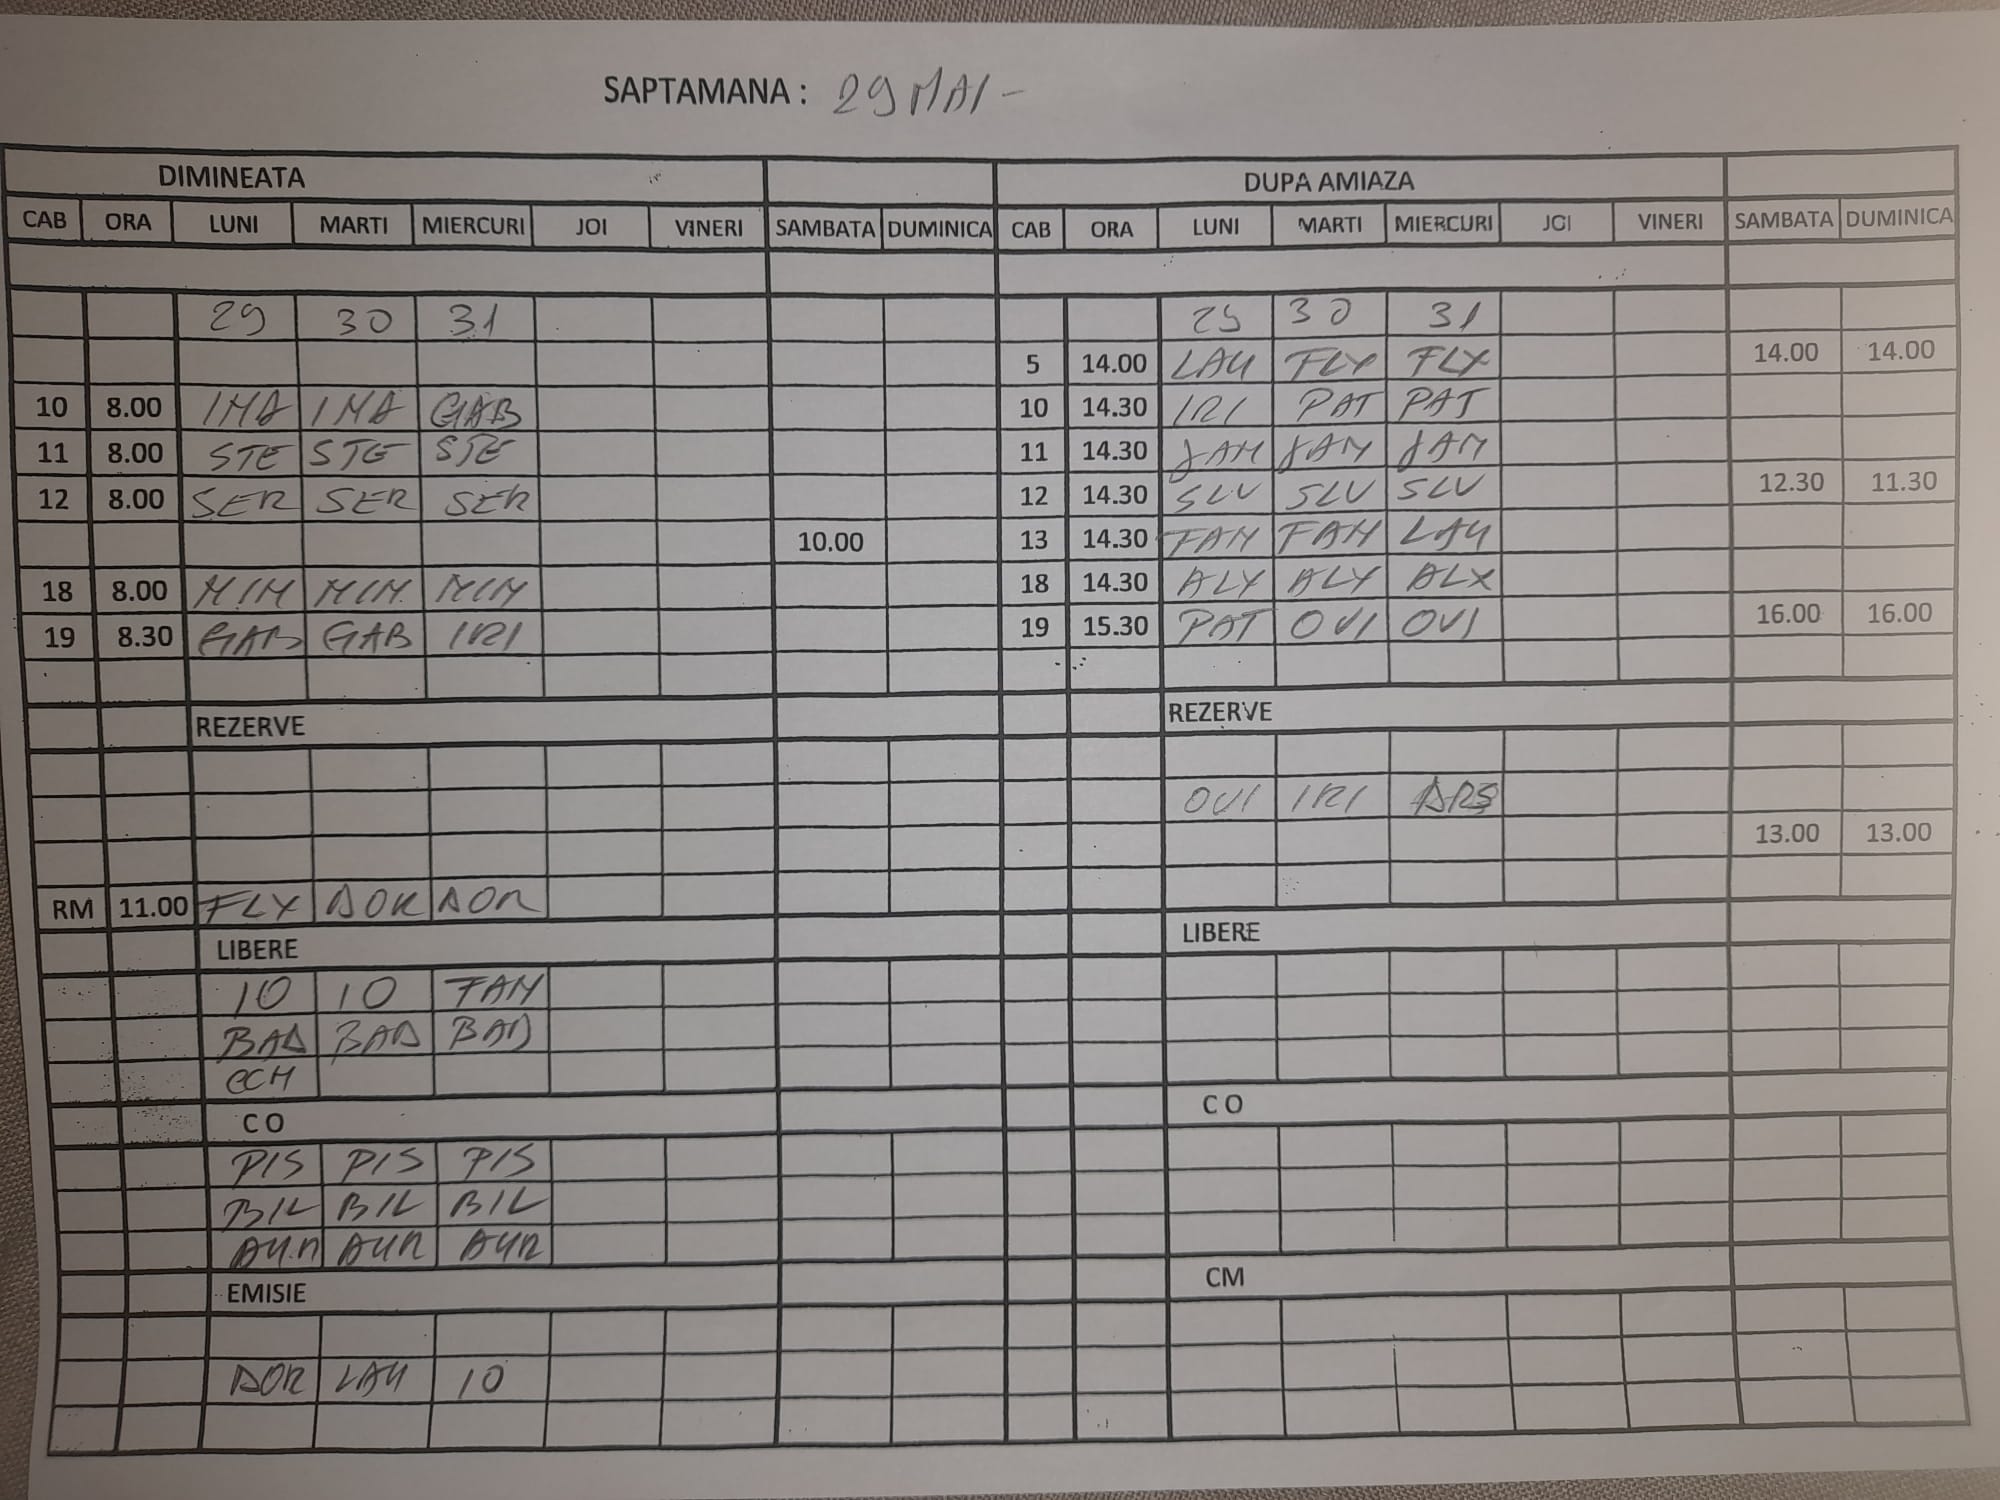 SAPTAMANA : 29 MAI -
DIMINEATA DUPA AMIAZA
CAB ORA LUNI MARTI MIERCURI JOI VINERI SAMBATA DUMINICA CAB ORA LUNI MARTI MIERCURI JOI VINERI SAMBATA DUMINICA
29 30 31 29 30 31
5 14.00 LAU FLX FLX 14.00 14.00
10 8.00 IMA IMA GAB 10 14.30 IRI PAT PAT
11 8.00 STE STE STE 11 14.30 JAM JAM JAM
12 8.00 SER SER SER 12 14.30 SLV SLV SLV 12.30 11.30
10.00 13 14.30 FAM FAM LAU
18 8.00 MIM MIM MIM 18 14.30 ALX ALX ALX
19 8.30 GAB GAB IRI 19 15.30 PAT OVI OVI 16.00 16.00
REZERVE REZERVE
OVI IRI
13.00 13.00
RM 11.00 FLX DOR DOR
LIBERE LIBERE
10 10 FAM
BAD BAD BAD
CCH
C O C O
PIS PIS PIS
BIL BIL BIL
AUR AUR AUR
EMISIE CM
DOR LAU 10